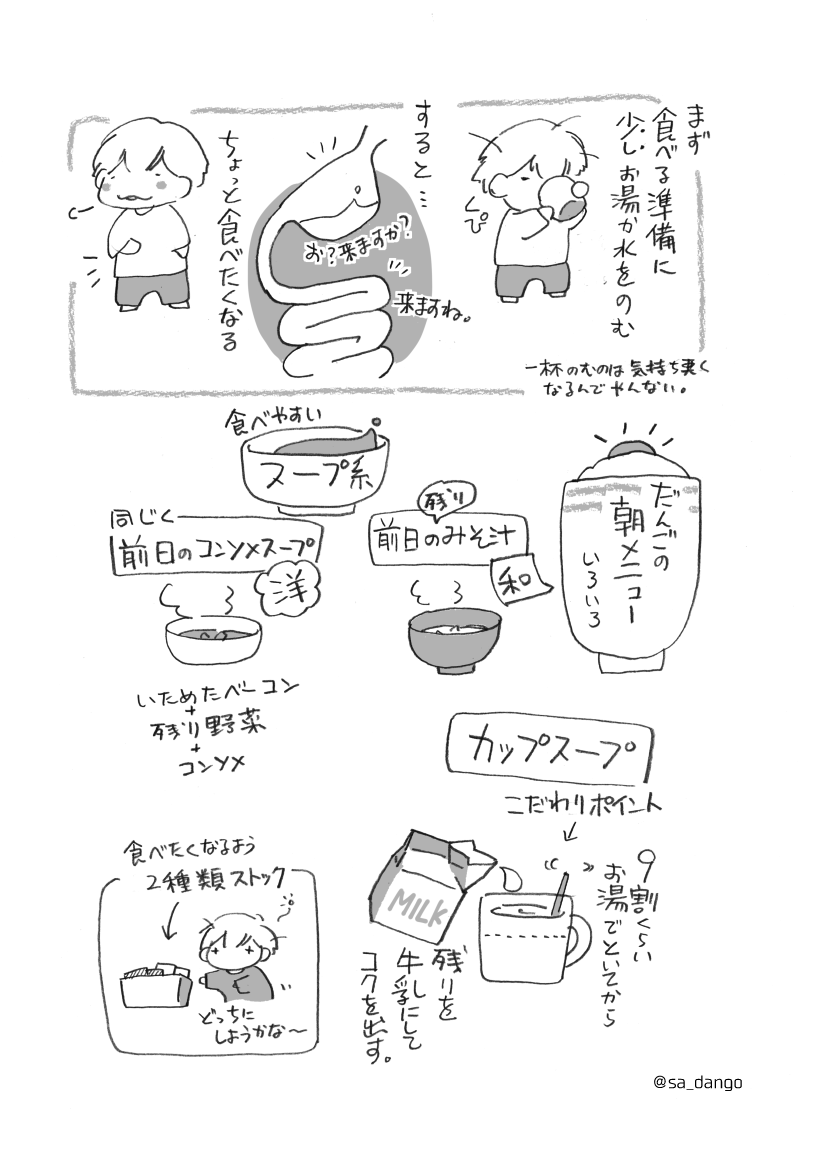 まず
食べる準備に
少しお湯か水をのむ
くぴ
一杯のむのは気持ち悪く
なるんでやんない。
すると…
お?来ますか?
来ますね。
ちょっと食べたくなる
だんごの
朝メニュー
いろいろ
食べやすい
スープ系
残り
前日のみそ汁
和
同じく
前日のコンソメスープ
洋
いためたベーコン
+
残り野菜
+
コンソメ
カップスープ
こだわりポイント
9割くらい
お湯でといてから
MILK
残りを
牛乳にして
コクを出す。
食べたくなるよう
2種類ストック
どっちに
しようかな〜
@sa_dango